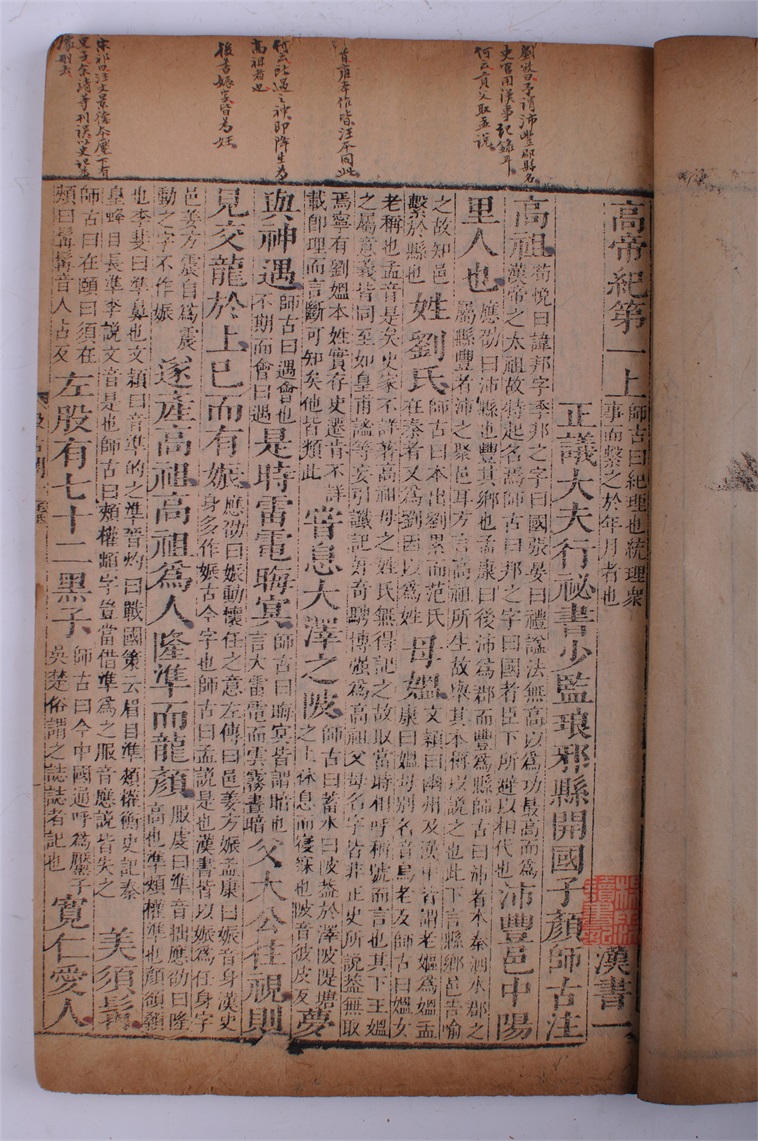 劉攽曰予謂沛豐郡縣名
史官用漢事記錄耳
何云貢父取孟說
何云此遇之神即降生爲
高祖者也
後書娠字皆爲妊
高帝紀第一上
師古曰紀理也統理衆
事而繫之於年月者也
漢書一
正議大夫行祕書少監琅邪縣開國子顏師古注
高祖
荀悅曰諱邦字季邦之字曰國張晏曰禮謚法無高以爲功最高而爲
漢帝之太祖故特起名焉師古曰邦之字曰國者臣下所避以相代也
沛豐邑中陽
里人也
應劭曰沛縣也豐其鄉也孟康曰後沛爲郡而豐爲縣師古曰沛者本秦泗水郡之
屬縣豐者沛之聚邑耳方言高祖所生故舉其本稱以說之也此下言縣鄉邑告喻
之故知邑
繫於縣也
姓劉氏
師古曰本出劉累而范氏
在秦者又爲劉因以爲姓
母媼
文穎曰幽州及漢中皆謂老嫗爲媼孟
康曰媼母別名音烏老反師古曰媼女
老稱也孟音是矣史家不詳著高祖母之姓氏無得記之故取當時相呼稱號而言也其下王媼
之屬意義皆同至如皇甫謐等妄引讖記好奇騁博强爲高祖父母名字皆非正史所說蓋無取
焉寧有劉媼本姓實存史遷肯不詳
載即理而言斷可知矣他皆類此
嘗息大澤之陂
師古曰蓄水曰陂蓋於澤陂隄塘
之上休息而寑寐也陂音彼皮反
夢
與神遇
師古曰遇會也
不期而會曰遇
是時雷電晦冥
師古曰晦冥皆謂暗也
言大雷電而雲霧晝暗
父太公往視則
見交龍於上已而有娠
應劭曰娠動懷任之意左傳曰邑姜方娠孟康曰娠音身漢史
身多作娠古今字也師古曰孟說是也漢書皆以娠爲任身字
邑姜方震自爲震
動之字不作娠
遂產高祖高祖爲人隆準而龍顏
服虔曰準音拙應劭曰隆
高也準頰權準也顏頟顙
也李斐曰準鼻也文穎曰音準的之準晉灼曰戰國策云眉目準頞權衡史記秦
皇蜂目長準李說文音是也師古曰頰權頞字豈當借準爲之服音應說皆失之
美須髯
師古曰在頤曰須在
頰曰髯髯音人占反
左股有七十二黑子
師古曰今中國通呼爲黶子
吳楚俗謂之誌誌者記也
寬仁愛人